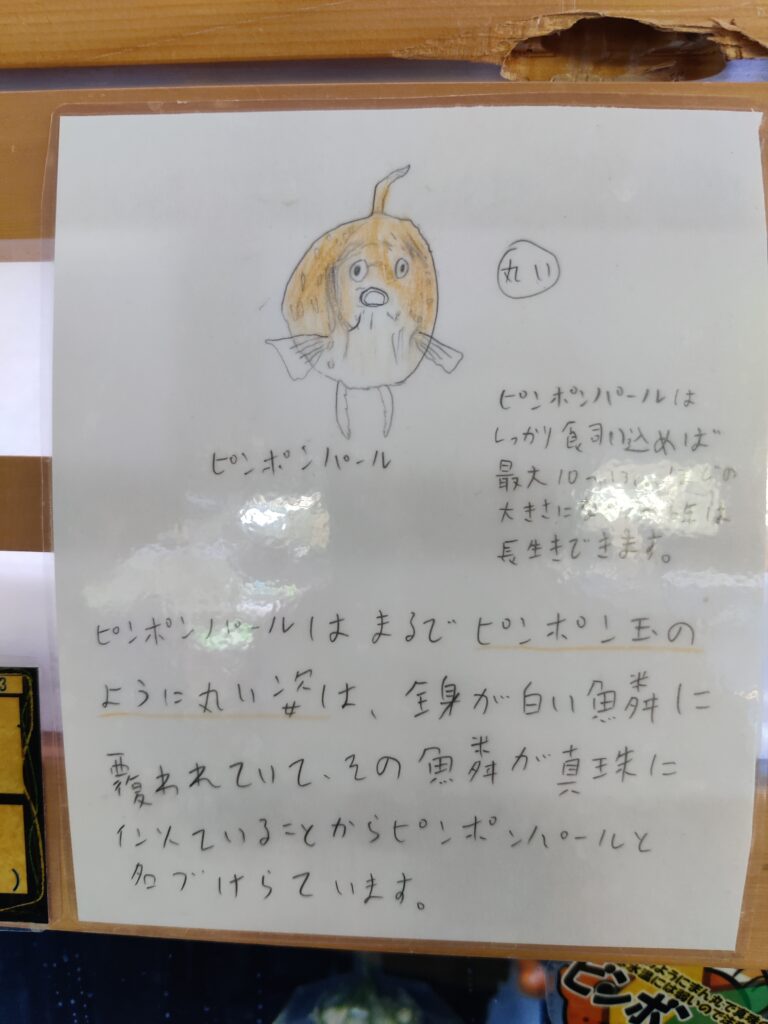 丸い
ピンポンパール
ピンポンパールは
しっかり食司い込めば
最大10~
大きさに
長生きできます。
ピンポンパールはまるでピンポン玉の
ように丸い姿は、全身が白い魚鱗に
覆われていて、その魚鱗が真珠に
似ていることからピンポンパールと
名づけらています。
3
)
ようにまん丸で
ピンポ